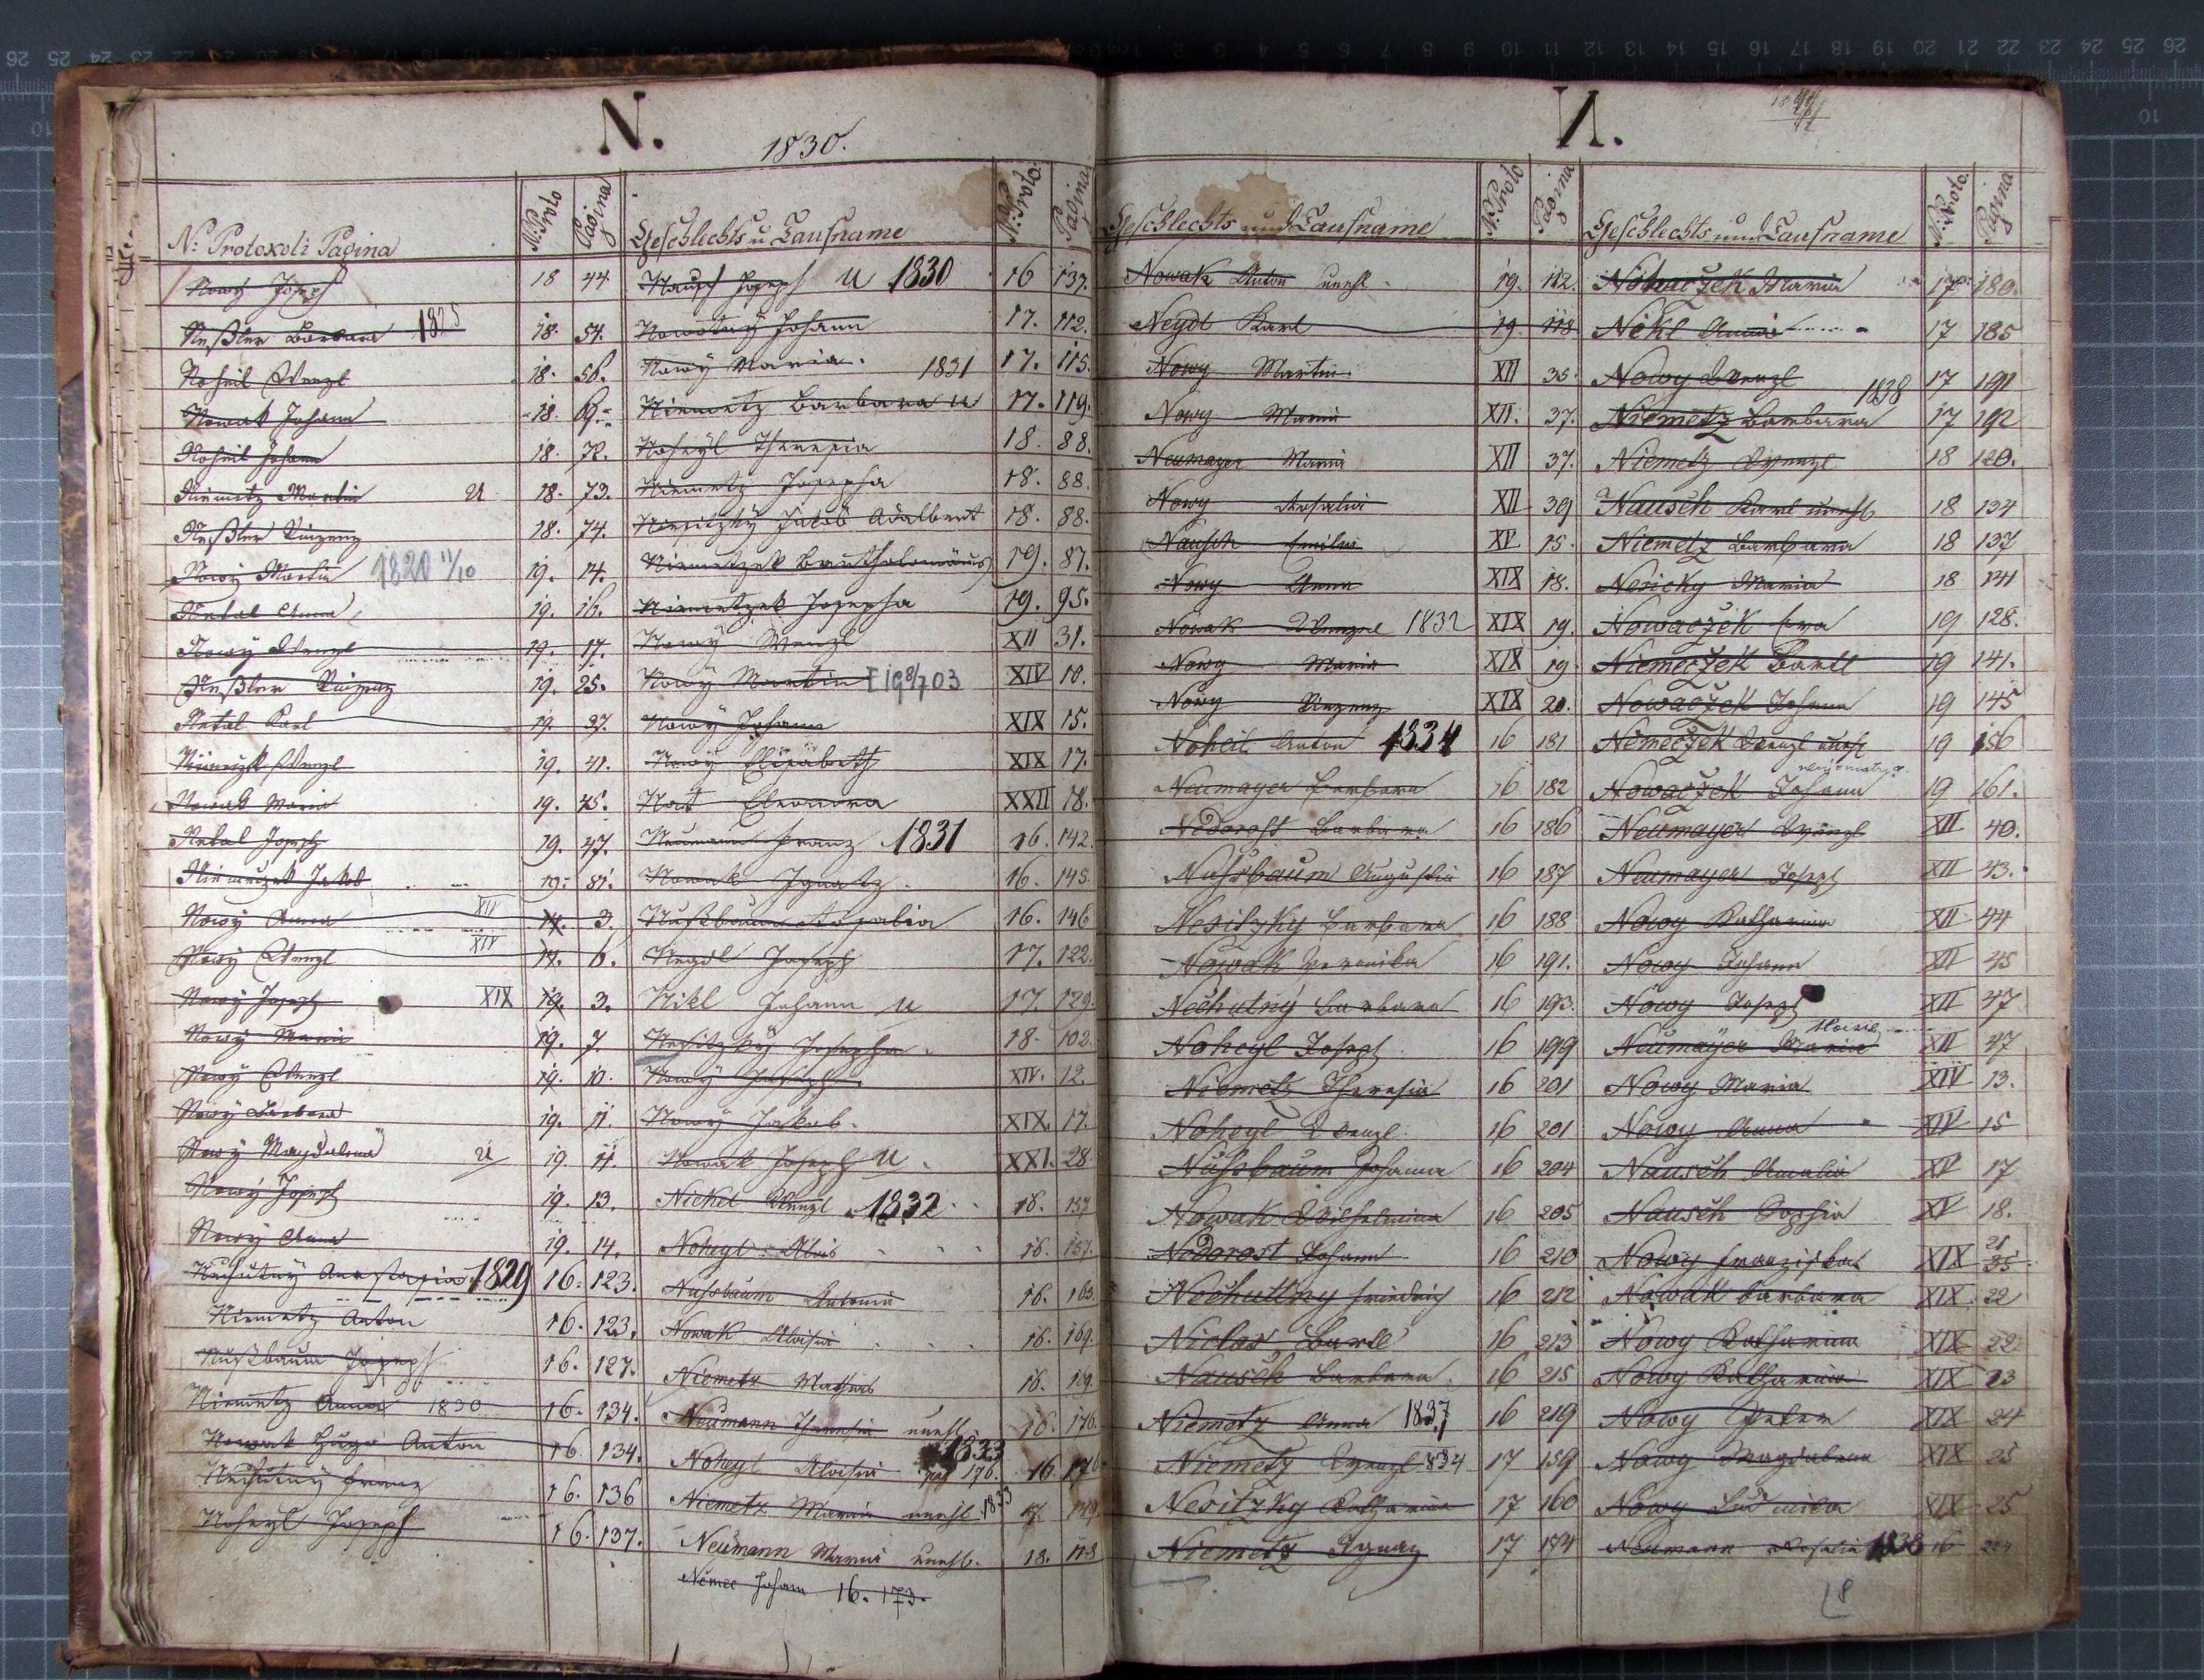 N.
1830.
N: Protokoli Pagina N: Proto Pagina
Nowy Joseph 18 44.
Neßler Barbara 1825 18. 54.
Noheil Wenzl 18. 56.
Nowak Johann 18. 69.
Noheil Johann 18. 72.
Niemetz Martin U 18. 73.
Neßler Vinzenz 18. 74.
Nowy Martin 1820 11/10 19. 14.
Netal Anna 19. 16.
Nowy Wenzl 19. 17.
Neßler Vinzenz 19. 25.
Netal Karl 19. 37.
Wenzl 19. 41.
Nowak Maria 19. 45.
Netal Joseph 19. 47.
Niemeczek Jakob 19. 51.
Nowy Anna XIV 14. 3.
Nowy Wenzl XIV 14. 6.
Nowy Joseph XIX 19. 3.
Nowy Maria 19. 7.
Nowy Wenzl 19. 10.
Nowy Barbara 19. 11.
Nowy Magdalena U 19 11.
Nowy Joseph 19. 13.
Nowy Anna 19. 14.
Nechutny Anastasia 1829 16. 123.
Niemetz Anton 16. 123.
Nußbaum Joseph 16. 127.
Niemetz Anna 1830 16. 134.
Nowak Hugo Anton 16. 134.
Nechutny Franz 16. 136
Noheyl Joseph 16. 137.
Geschlechts u Taufname N: Proto: Pagina
Nausch Joseph U 1830 16 137.
Nowotny Johann 17. 112.
Nowy Maria. 1831 17. 115.
Niemetz Barbara U 17. 119.
Noheyl Theresia 18. 88.
Niemetz Josepha 18. 88.
Nesitzky Jakob Adalbert 18. 88.
Niemetzek Bartholomäus 19. 87.
Niemetzek Josepha 19. 95.
Nowy Wenzl XII 31.
Nowy Martin XIV 10.
Nowy Johann XIX 15.
Nowy Elisabeth XIX 17.
Nat Eleonora XXII 18.
Neumann Franz 1831 16. 142.
Nowak Ignatz. 16. 145.
Nußbaum Rosalia 16. 146
Negdl Joseph 17. 122.
Nikl Johann U 17. 129.
Nesitzky Josepha. 18. 102.
Nowy Joseph. XIV. 12.
Nowy Jakob. XIX. 17.
Nowak Joseph U. XXI. 28
Nickel Wenzl 1832 16. 157
Noheyl Alois 16. 157.
Nussbaum Antonia 16. 163.
Nowak Aloisia 16. 169.
Niemetz Mathias 16. 169
Neumann Theresia unehl. 16. 176.
Noheyl Aloisia pag 176. 1833 16 176
Niemetz Maria unehl. 1833 17. 149.
Neümann Maria unehl. 18. 118
Němec Johann 16. 173.
N.
Geschlechts und Taufname N: Proto Pagina
Nowak Anton unehl. 19. 112.
Neydl Karl 19. 118
Nowy Martin XII 35.
Nowy Maria XII. 37.
Neumayer Maria XII 37.
Nowy Rosalia XII 39
Nausch Emilia XV 15.
Nowy Anna XIX 18.
Nowak Wenzel 1832 XIX 19.
Nowy Maria XIX 19
Nowy Vinzenz XIX 20.
Noheil Anton 1834 16 181
Neumayer Barbara 16 182
Nedorost Barbara 16 186
Nussbaum Augustin 16 187
Nesitzky Barbara 16 188
Nowak Veronika 16 191.
Nechutny Barbara 16 193.
Noheyl Joseph 16 199
Niemetz Theresia 16 201
Noheyl Wenzl 16 201
Nussbaum Johanna 16 204
Nowak Wilhelmina 16 205
Nedorost Johann 16 210
Nechuttny Friedrich 16 212
Niclas Bartl 16 213
Nausch Barbara 16 215
Niemetz Anna 1837 16 219
Niemetz Wenzl 834 17 159
Nesitzky Katharina 17 160
Niemetz Ignaz 17 174
Geschlechts und Taufname N: Proto. Pagina
Nowaczek Maria 17 180.
Nekl Anna 17 185
Nowy Wenzl 17 191
Niemetz Barbara 1838 17 192
Niemetz Wenzl 18 120.
Nausch Karl unehl 18 134
Niemetz Barbara 18 137
Nesicky Maria 18 141
Nowaczek Eva 19 128.
Niemeczek Bartl 19 141.
Nowaczek Johann 19 145
Němeczek Wenzl unehl 19 156
Nowaczek Johann 19 161.
Neumayer Wenzl XII 40.
Neumayer Joseph XII 43.
Nowy Katharina XII 44
Nowy Johann XII 45
Nowy Joseph XII 47
Neumayer Maria XII 47
Nowy Maria XIV 13.
Nowy Anna XIV 15
Nausch Amalia XV 17
Nausch Sophia XV 18.
Nowy Franziska XIX 21 35
Nowak Barbara XIX 22
Nowy Katharina XIX 22
Nowy Katharina XIX 23
Nowy Peter XIX 24
Nowy Magdalena XIX 25
Nowy Ludmila XIX 25
Neumann Rosalia 1838 16 224